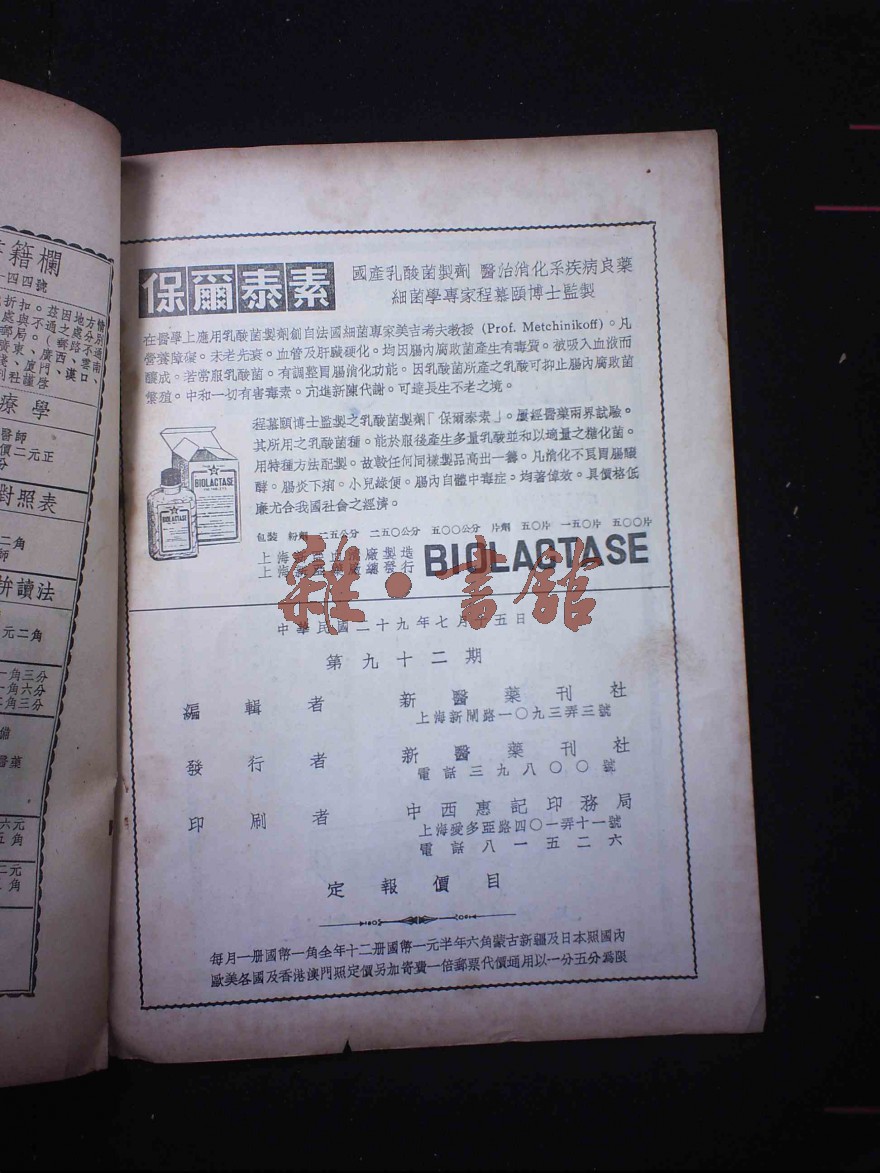 保爾泰素
國產乳酸菌製劑 醫治消化系疾病良藥
細菌學專家程慕頤博士監製
在醫學上應用乳酸菌製劑創自法國細菌專家美吉考夫教授 (Prof. Metchinikoff)。凡
營養障礙。未老先衰。血管及肝臟硬化。均因腸內腐敗菌產生有毒質。被吸入血液而
釀成。若常服乳酸菌。有調整胃腸消化功能。因乳酸菌所產之乳酸可抑止腸內腐敗菌
繁殖。中和一切有害毒素。亢進新陳代謝。可達長生不老之境。
程慕頤博士監製之乳酸菌製劑「保爾泰素」。屢經醫藥兩界試驗。
其所用之乳酸菌種。能於服後產生多量乳酸並和以適量之糖化菌。
用特種方法配製。故較任何同樣製品高出一籌。凡消化不良胃腸醱
酵。腸炎下痢。小兒綠便。腸內自體中毒症。均著偉效。具價格低
廉尤合我國社會之經濟。
BIOLACTASE
BIOLACTASE
包裝 粉劑 二五公分 二五〇公分 五〇〇公分 片劑 五〇片 一五〇片 五〇〇片
上海 廠製造
上海 發行
BIOLACTASE
雜·書館
中華民國二十九年七月十五日
第九十二期
編輯者 新醫藥刊社
上海新閘路一〇九三弄三號
發行者 新醫藥刊社
電話三九八〇〇號
印刷者 中西惠記印務局
上海愛多亞路四〇一弄十一號
電話八一五二六
定報價目
每月一册國幣一角全年十二册國幣一元半年六角蒙古新疆及日本照國內
歐美各國及香港澳門照定價另加寄費一倍郵票代價通用以一分五分為限
籍欄
四四號
折扣。茲因地方情
療學
醫師
價二元正
對照表
二角
師
拚讀法
元二角
一角三分
一角六分
角三分
醫藥
六元
五角
二元
角